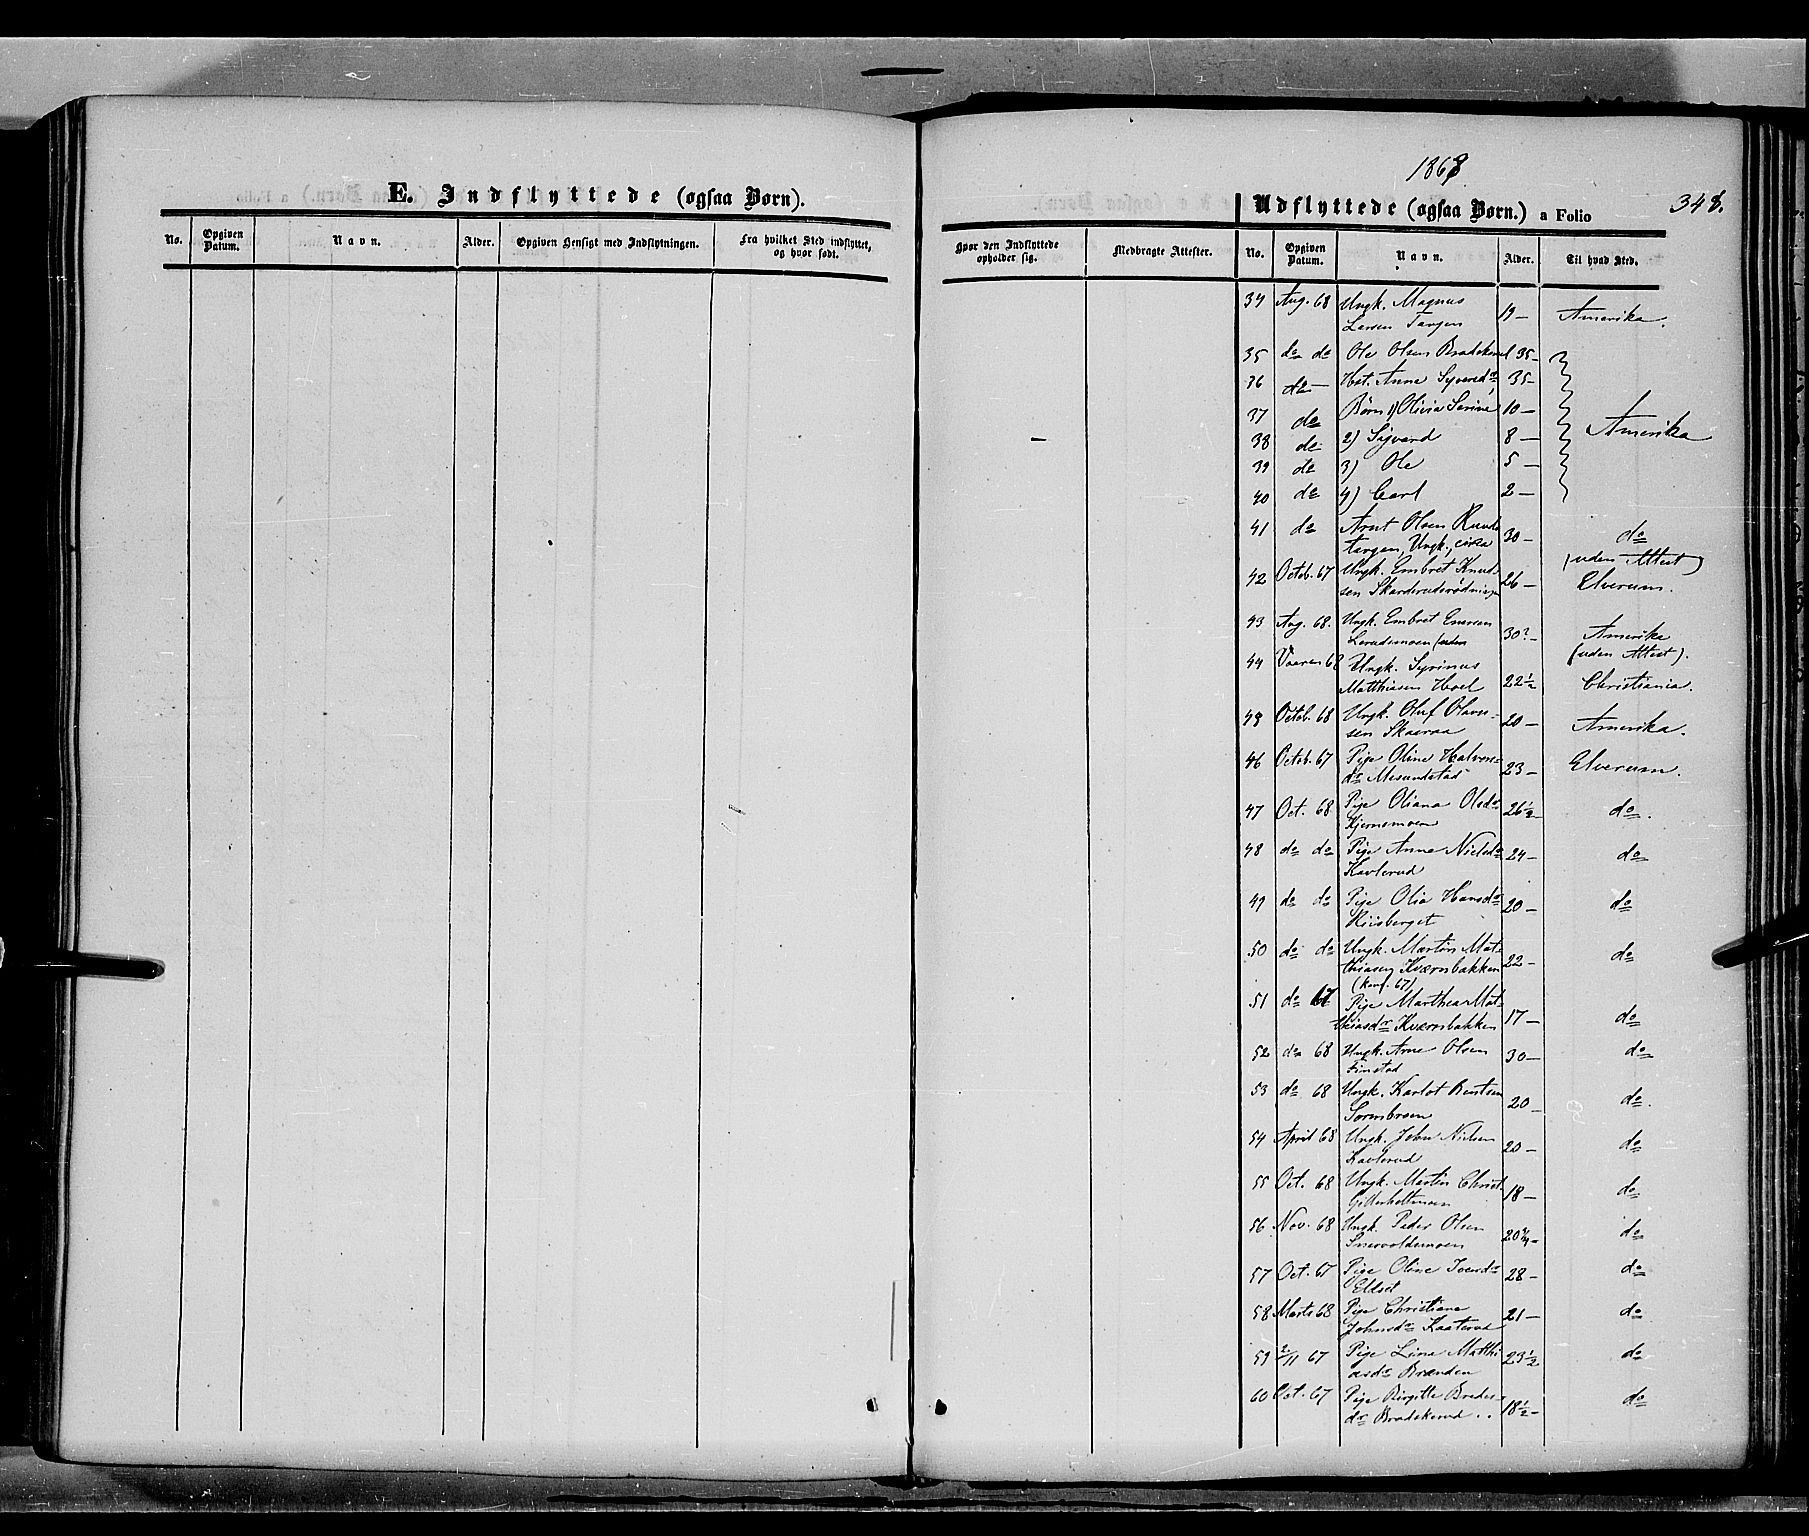 E. Indflyttede (ogsaa Børn).
No. Opgiven Datum. Navn. Alder. Opgiven Hensigt med Indflytningen. Fra hvilket Sted indflyttet, og hvor født.
1868
Udflyttede (ogsaa Børn.) a Folio 348.
Hvor den Indflyttede opholder sig. Medbragte Attester. No. Opgiven Datum. Navn. Alder. Til hvad Sted.
34 Aug. 68 Ungk. Magnus
Larsen Tangen 19 — Amerika.
35 do do Ole Olsen Bradskerud 35 —
36 do — Hst. Anne Syversdr 35 —
37 do Børn 1) Olivia Serine 10 — Amerika
38 do 2) Sigvard 8 —
39 do 3) Ole 5 —
40 do 4) Carl 2 —
41 do Arnt Olsen Ruuds
tangen, Ungk., circa 30 — do
(uden Attest)
42 Octob. 67 Ungk. Embret Knud-
sen Skarderudsrødningen 26 — Elverum.
43 Aug. 68. Ungk. Embret Enersen
Lerudsmoen (uden 30? — Amerika
(uden Attest).
44 Vaaren 68 Ungk. Syrinus
Matthiasen Hoel 22½ Christiania.
45 Octob. 68 Ungk. Oluf Olaves-
sen Skaaraa 20 — Amerika.
46 Octob. 67 Pige Oline Halvors-
dr Mesundstad 23 — Elverum.
47 Oct. 68 Pige Oliana Olsdr
Kjernemoen 26½ — do.
48 do do Pige Anne Nielsdr
Kavlerud 24 — do
49 do do Pige Olia Hansdr
Riisberget 20 — do
50 do do Ungk. Martin Mat-
thiasen Kværnbakken 22 — do
(konf. 67)
51 do 67 Pige Marthea Mat-
thiasdr Kværnbakken 17 — do
52 do 68 Ungk. Arne Olsen
Finstad 30 — do
53 do 68 Ungk. Karlot Berntsen
Sormbroen 20 — do.
54 April 68 Ungk. John Nielsen
Kavlerud 20 — do
55 Oct. 68 Ungk. Martin Christ.
18 — do
56 Nov. 68 Ungk. Peder Olsen
Snervoldsmoen 20¾ — do
57 Oct. 67 Pige Oline Iversdr
Eldset 28 — do
58 Marts 68 Pige Christiane
Johnsdr Kaaterud 21 — do
59 2/11 67 Pige Lina Matthi-
asdr Brænden 23½ do
60 Oct. 67 Pige Birgitte Breder-
dr Bradskerud .. 18½ — do